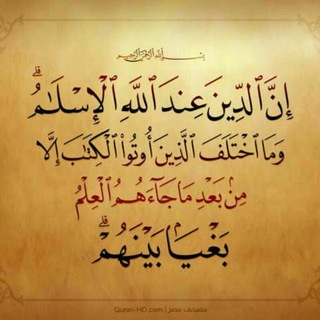 بسم الله الرحمن الرحيم
إِنَّ ٱلدِّينَ عِندَ ٱللَّهِ ٱلْإِسْلَـٰمُ ۗ
وَمَا ٱخْتَلَفَ ٱلَّذِينَ أُوتُوا۟ ٱلْكِتَـٰبَ إِلَّا
مِنۢ بَعْدِ مَا جَآءَهُمُ ٱلْعِلْمُ
بَغْيًۢا بَيْنَهُمْ ۗ
Quran-HD.com | مصحف معبر